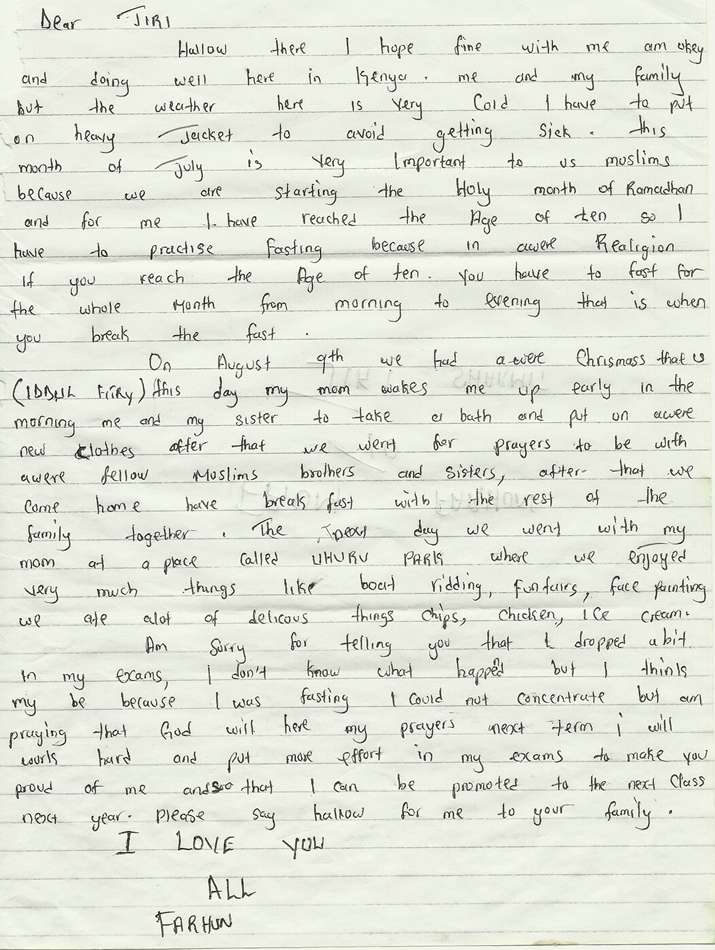 Dear JIRI
Hallow there I hope fine with me am okey
and doing well here in Kenya. me and my family
but the weather here is very Cold I have to put
on heavy Jacket to avoid getting Sick. this
month of July is very Important to us muslims
because we are starting the Holy month of Ramadhan
and for me I have reached the Age of ten so I
have to practise fasting because in awere Realigion
if you reach the Age of ten. you have to fast for
the whole Month from morning to evening that is when
you break the fast.
On August 9th we had awere Chrismass that is
(IDDHL FITRY) this day my mom wakes me up early in the
morning me and my sister to take a bath and put on awere
new clothes after that we went for prayers to be with
awere fellow Muslims brothers and sisters, after that we
come home have break fast with the rest of the
family together. The next day we went with my
mom at a place called UHURU PARK where we enjoyed
very much things like boat ridding, funfairs, face painting
we ate alot of delicous things chips, chicken, ICe cream.
Am sorry for telling you that I dropped a bit
in my exams, I don't know what happed but I think
my be because I was fasting I could not concentrate but am
praying that God will here my prayers next term i will
work hard and put more effort in my exams to make you
proud of me and so that I can be promoted to the next Class
next year. please say hallow for me to your family.
I LOVE YOU
ALL
FARHUN